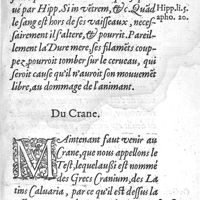 ué par Hipp. Si in vẽtrem, &. Quãd
le sang est hors de ses vaisseaux, neces-
sairement il s'altere, & pourrit. Pareil-
lement la Dure mere, ses filamẽts coup-
pez, pourroit tomber sur le cerueau, qui
seroit cause qu'il n'auroit son mouuemẽt
libre, au dommage de l'animant.
Hipp. li. 5.
apho. 20.
Du Crane.
MAintenant faut venir au
Crane, que nous appellons le
Test, lequel aussi est nommé
des Grecs Cranium, des La
tins Caluaria, par ce qu'il est dessus la